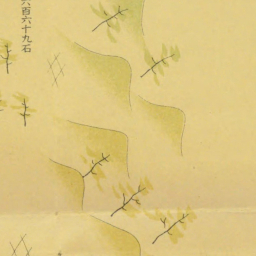 六百六十九石